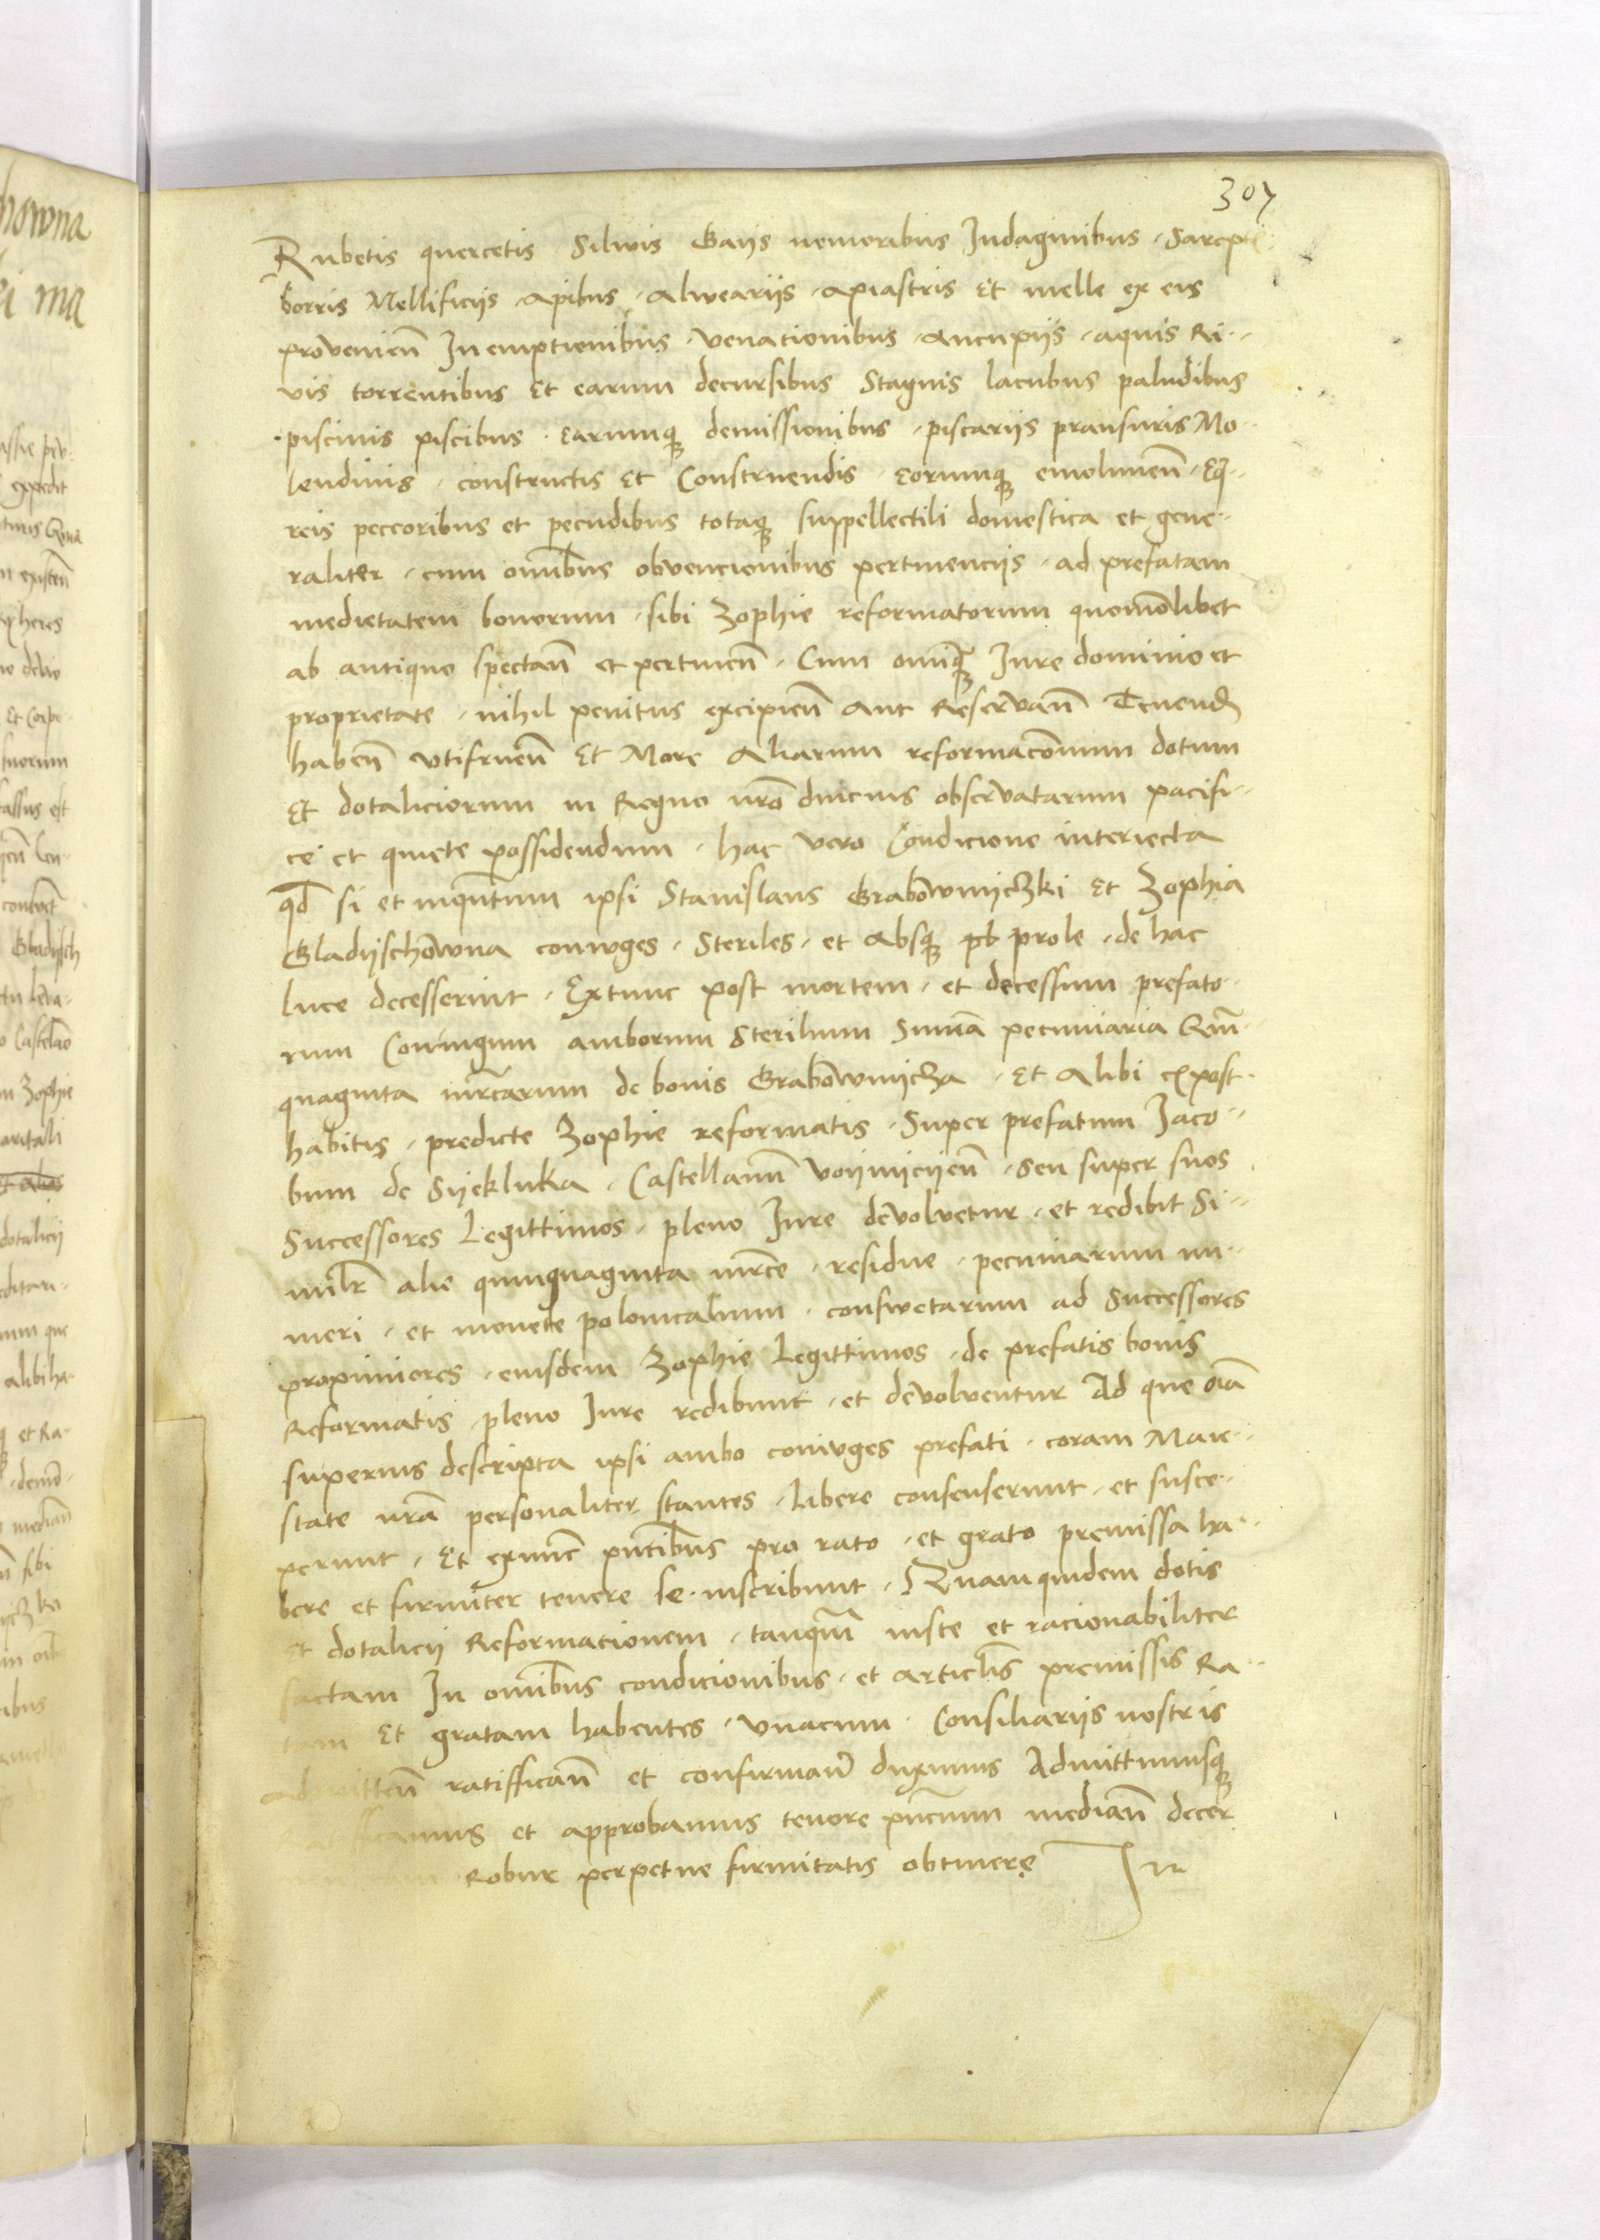 307
Rubetis quercetis Silwis Gaijs nemoribus Indaginibus Sarepti
borris Mellificijs apibus alwearijs apiastris Et melle ex eis
provenien̄ In emptionibus venationibus aucupijs aquis Ri-
vis torrentibus Et earum decursibus Stagnis lacubus paludibus
piscinis piscibus earumq̨ demissionibus piscarijs pransuris Mo-
lendinis constructis Et Construendis eorumq̨ emolumen̄ Eq̄-
reis peccoribus et pecudibus totaq̨ suppellectili domestica et gene-
raliter cum om̄ibus obvencionibus pertinencijs ad prefatam
medietatem bonorum sibi Zophie reformatorum quomōlibet
ab antiquo spectan̄ et pertinen̄ Cum omīq̨ Iure dominio et
proprietate nihil penitus excipien̄ aut Reservan̄ Tenend̄
haben̄ utifruen̄ Et More Aliarum reformacōnum dotum
Et dotaliciorum in Regno nr̄o diucius observatarum pacifi-
ce et quiete possidendum hac vero Condicione interiecta
qd̄ si et inqn̄tum ipsi Stanislaus Grabowniczki Et Zophia
Gladijschowna coniuges Steriles et absq̨ pb prole de hac
luce decesserint Extunc post mortem et decessum prefato-
rum Coniugum amborum Sterilium Summa pecuniaria Quin-
quaginta mrcarum de bonis Grabownijcza Et Alibi expost
habitis predicte Zophie reformatis Super prefatum Iaco-
bum de Sijekluka Castellanu̅ voijnicijen̄ seu super suos
Successores Legittimos pleno Iure devolvetur et redibit Si-
milr̄ alie quinquaginta mrce residue pecuniarum nu-
meri et monete polonicalium conswetarum ad Successores
propinniores eiusdem Zophie Legittimos de prefatis bonis
Reformatis pleno Iure redibunt et devolventur Ad que om̄ia
superius descripta ipsi ambo coniuges prefati coram Maie-
state nr̄a personaliter stantes Libere consenserunt et susce-
perunt Et exnunc pn̄tibus pro rato et grato premissa ha-
bere et firmiter tenere se inscribunt Quamquidem dotis
et dotalicij Reformationem tanqm̄ iuste et racionabiliter
factam In om̄ibus condicionibus et articl̄is premissis Ra-
tam Et gratam habentes unacum Consiliarijs nostris
admitten̄ ratifficān et confirman̄d duximus Admittimusq̨
et approbamus tenore pn̄cium median̄ decer
Robur perpetue firmitatis obtinere In